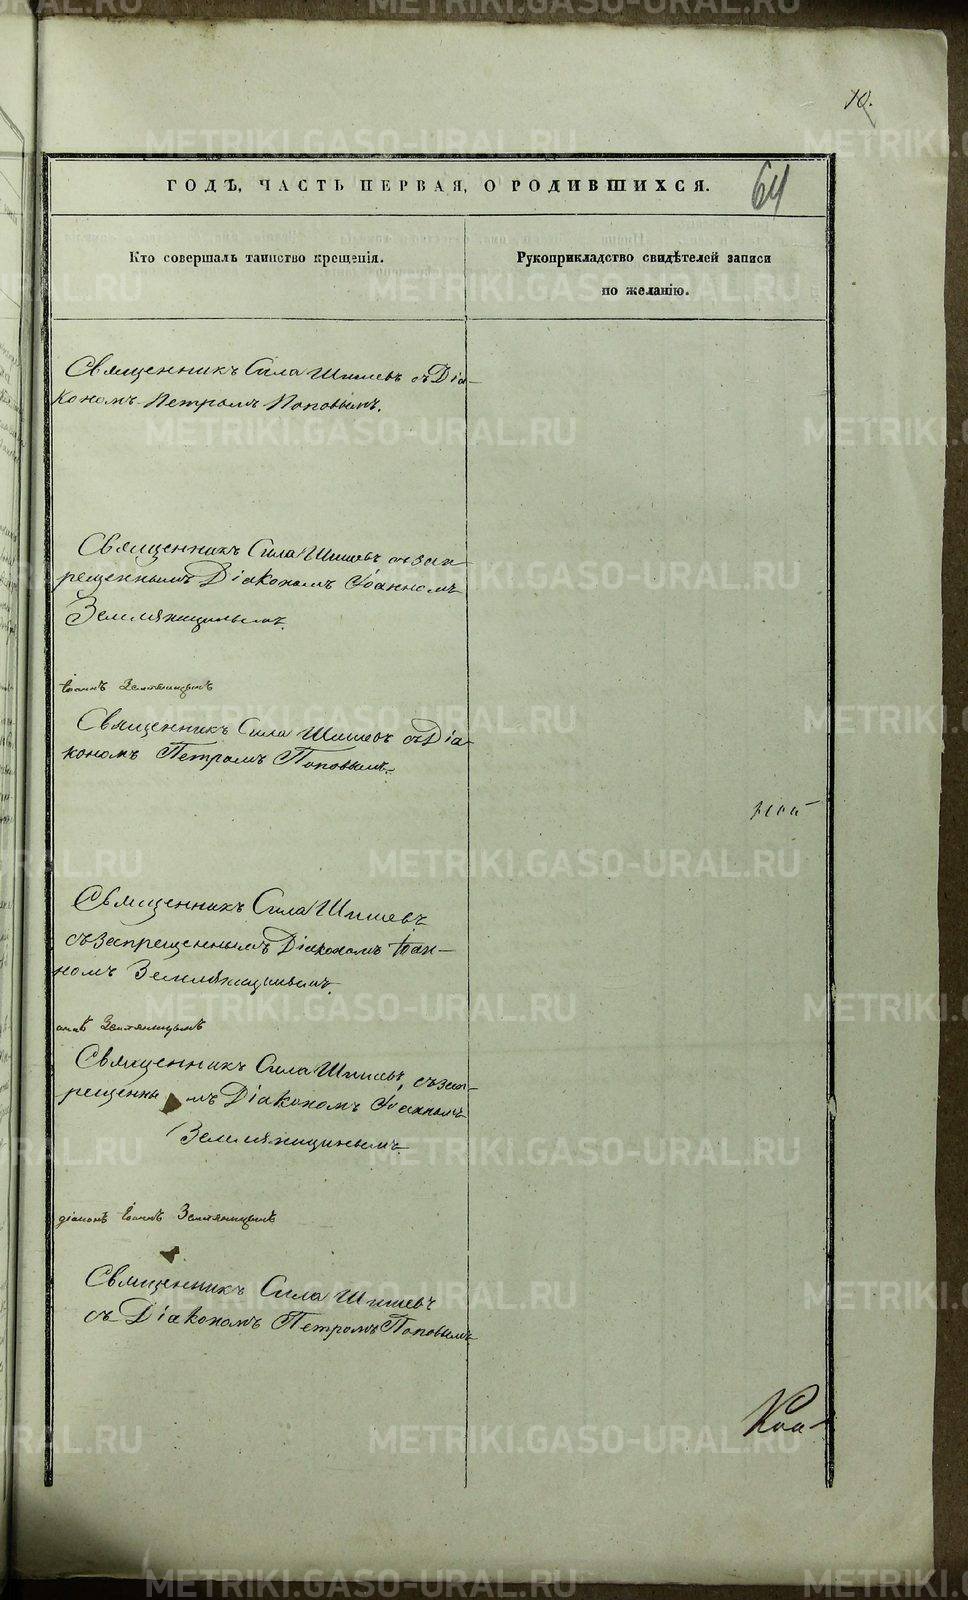 10.
64
ГОДѢ, ЧАСТЬ ПЕРВАЯ, О РОДИВШИХСЯ.
Кто совершалъ таинство крещенія.
Рукоприкладство свидѣтелей записи
по желанію.
Священникъ Сила Шишевъ съ Діа-
кономъ Петромъ Поповымъ.
Священникъ Сила Шишевъ съ зап
рещеннымъ Діакономъ Іоанномъ
Земляницынымъ.
Іоаннъ Земляницынъ
Священникъ Сила Шишевъ съ Діа-
кономъ Петромъ Поповымъ.
Священникъ Сила Шишевъ
съ запрещеннымъ Діакономъ Іоан-
номъ Земляницынымъ.
Земляницынъ
Священникъ Сила Шишевъ, съ зап-
рещеннымъ Діакономъ Іоанномъ
Земляницынымъ.
діаконъ Іоаннъ Земляницынъ
Священникъ Сила Шишевъ
съ Діакономъ Петромъ Поповымъ
METRIKI.GASO-URAL.RU